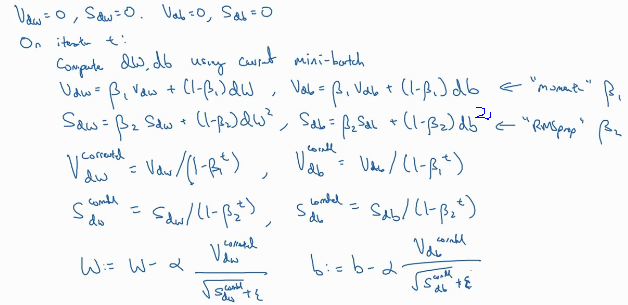 V_dw = 0, S_dw = 0. V_db = 0, S_db = 0
On iteration t:
Compute dW, db using current mini-batch
V_dw = β₁ V_dw + (1-β₁) dW, V_db = β₁ V_db + (1-β₁) db ← "momentum" β₁
S_dw = β₂ S_dw + (1-β₂) dW², S_db = β₂ S_db + (1-β₂) db² ← "RMSprop" β₂
V_dw^corrected = V_dw / (1-β₁^t), V_db^corrected = V_db / (1-β₁^t)
S_dw^corrected = S_dw / (1-β₂^t), S_db^corrected = S_db / (1-β₂^t)
W := W - α V_dw^corrected / (√S_dw^corrected + ε) b := b - α V_db^corrected / (√S_db^corrected + ε)